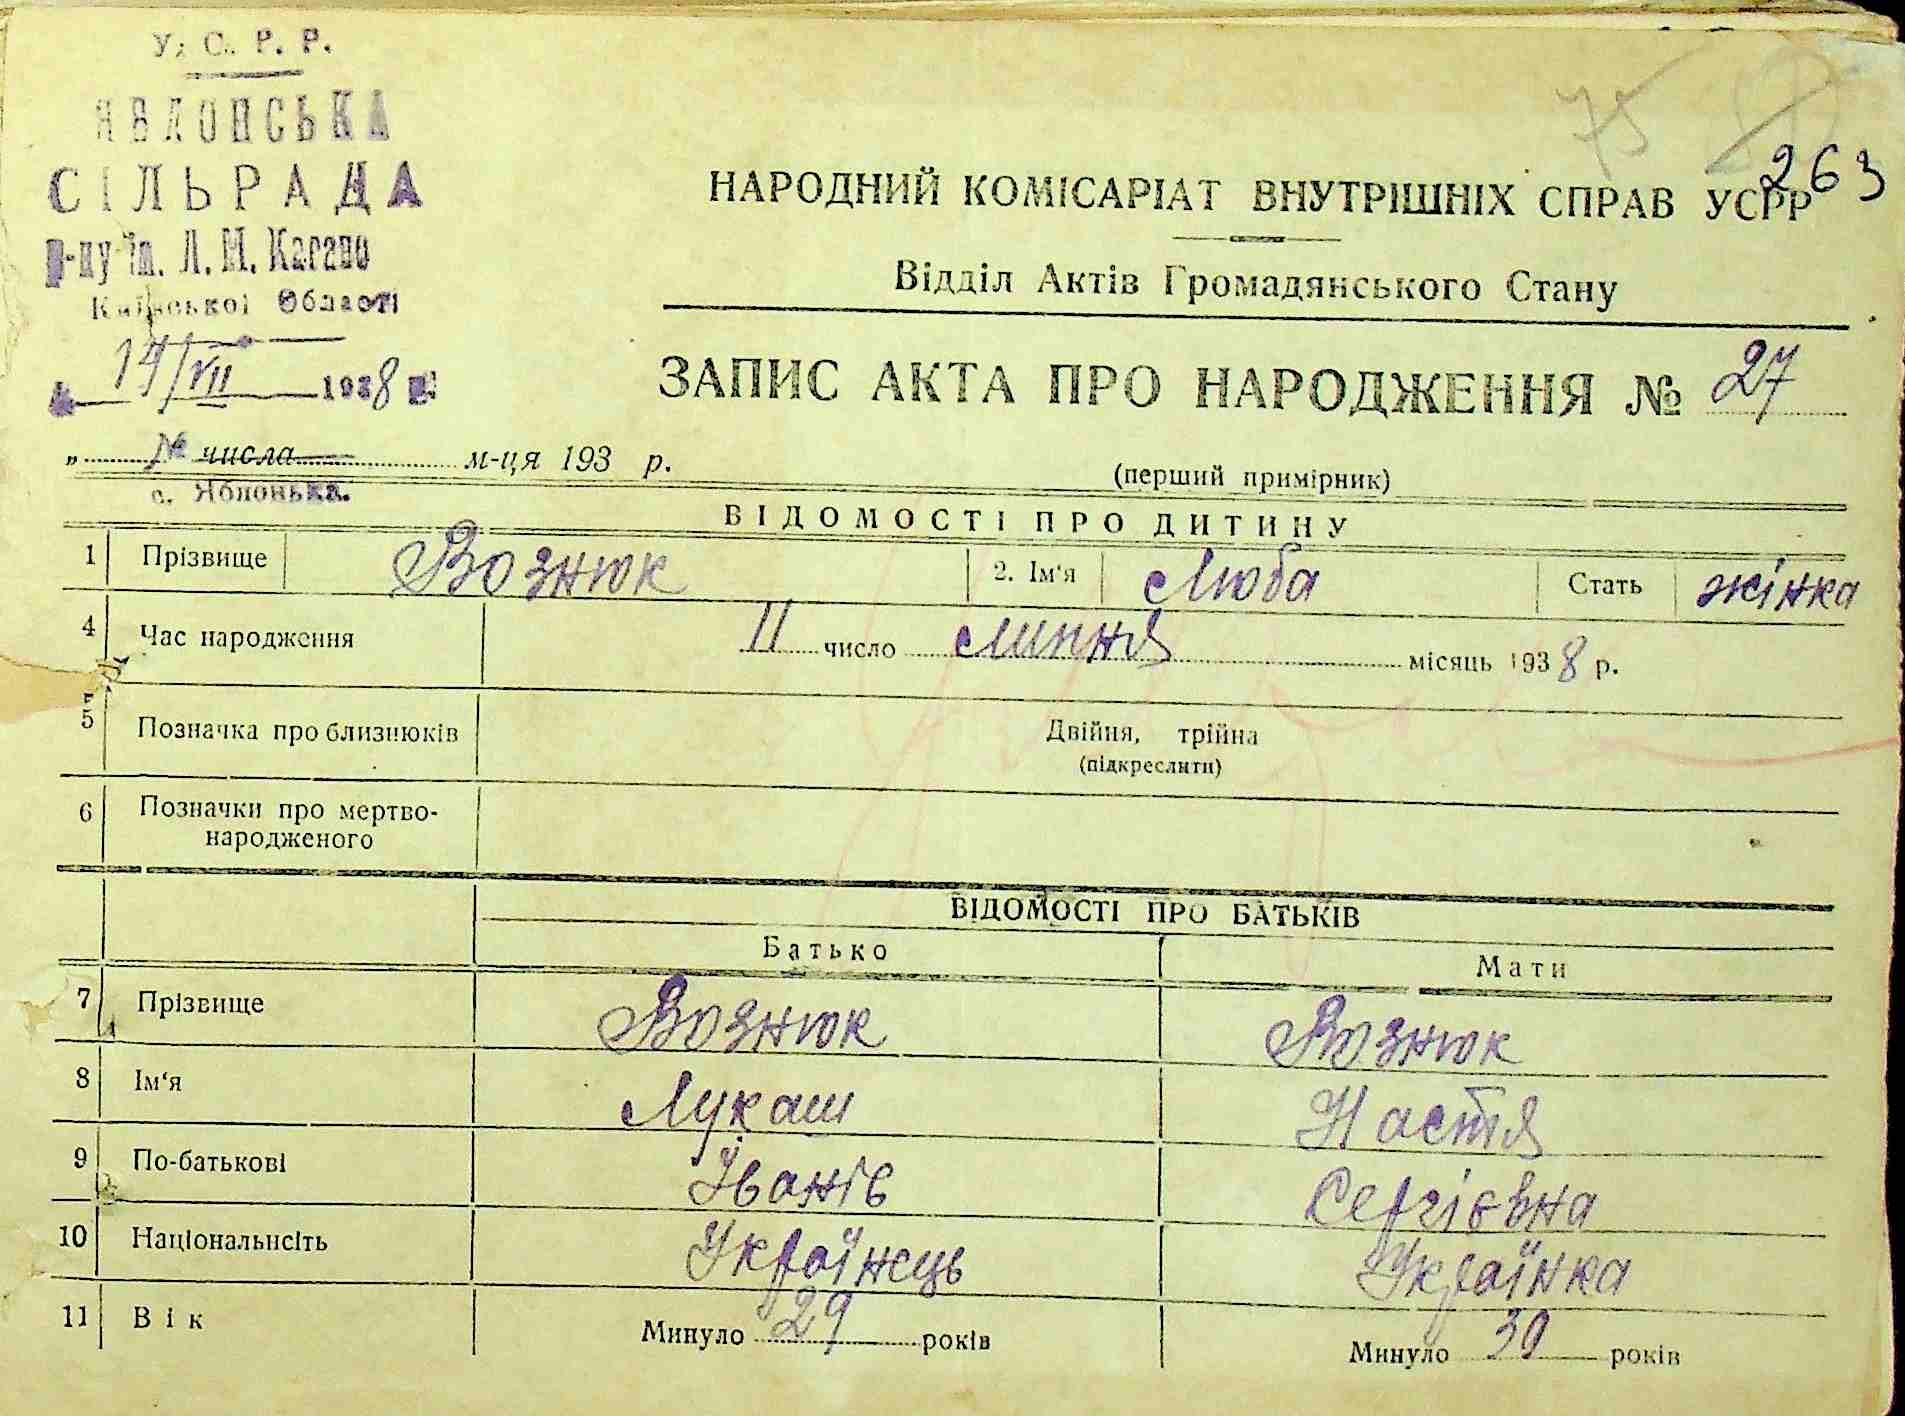 У. С. Р. Р.
ЯБЛОНСЬКА
СІЛЬРАДА
р-ну ім. Л. М. Кагано
Київської Області
14/VII 1938 р.
№
с. Яблонька.
75
263
НАРОДНИЙ КОМІСАРІАТ ВНУТРІШНІХ СПРАВ УСРР
Відділ Актів Громадянського Стану
ЗАПИС АКТА ПРО НАРОДЖЕННЯ № 27
„ числа м-ця 193 р.
(перший примірник)
ВІДОМОСТІ ПРО ДИТИНУ
1 Прізвище Вознюк 2. Ім‘я Люба Стать жінка
4 Час народження 11 число липня місяць 1938 р.
5 Позначка про близнюків Двійня, трійна
(підкреслити)
6 Позначки про мертво-
народженого
ВІДОМОСТІ ПРО БАТЬКІВ
Батько Мати
7 Прізвище Вознюк Вознюк
8 Ім‘я Лукаш Настя
9 По-батькові Іванів Сергієвна
10 Національнсіть Українець Українка
11 Вік Минуло 29 років Минуло 30 років